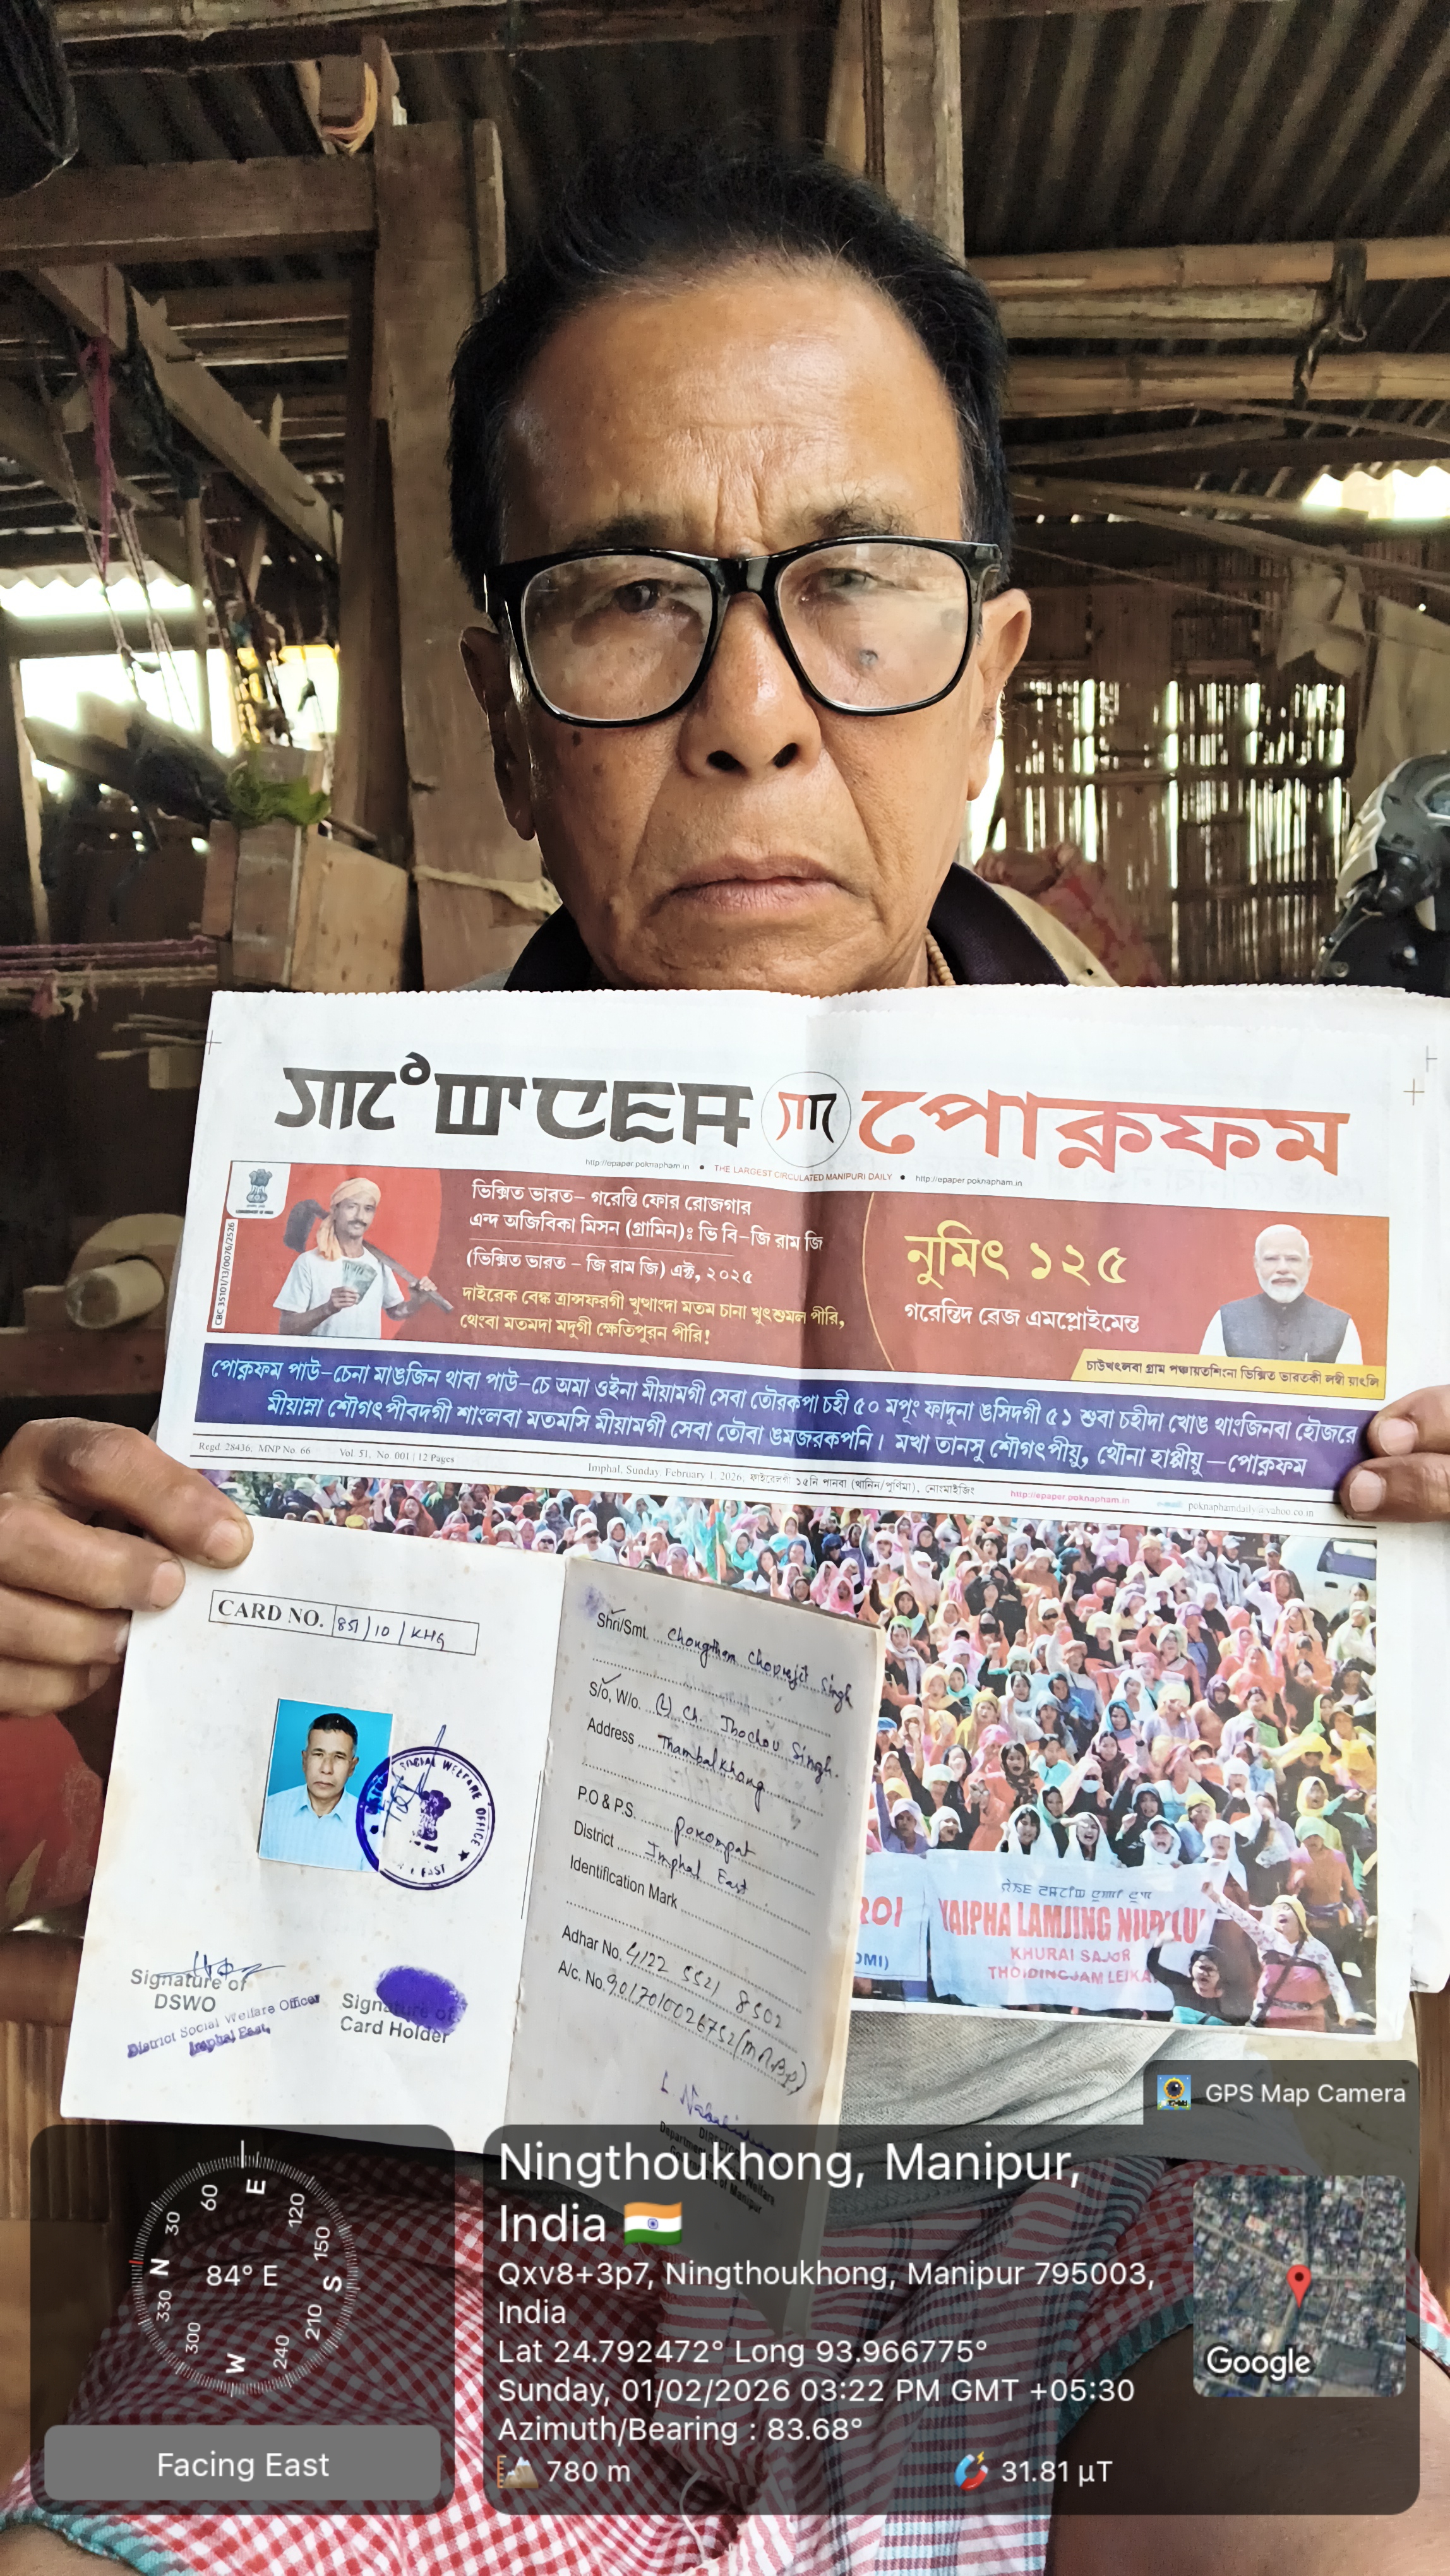 ꯄꯣꯛꯅꯐꯝ
পোক্নফম
http://epaper.poknapham.in ● THE LARGEST CIRCULATED MANIPURI DAILY ● http://epaper.poknapham.in
CBC 35101/13/0076/2526
ভিক্সিত ভারত– গরেন্তি ফোর রোজগার
এন্দ অজিবিকা মিসন (গ্রামিন)ঃ ভি বি–জি রাম জি
(ভিক্সিত ভারত – জি রাম জি) এক্ট, ২০২৫
দাইরেক বেঙ্ক ত্রান্সফরগী খুত্থাংদা মতম চানা খুৎশুমল পীরি,
থেংবা মতমদা মদুগী ক্ষেতিপুরন পীরি!
নুমিৎ ১২৫
গরেন্তিদ ৱেজ এমপ্লোইমেন্ত
চাউখৎলবা গ্রাম পঞ্চায়তশিংনা ভিক্সিত ভারতকী লম্বী য়াংলি
পোক্নফম পাউ–চেনা মাঙজিন থাবা পাউ–চে অমা ওইনা মীয়ামগী সেবা তৌরকপা চহী ৫০ মপুং ফাদুনা ঙসিদগী ৫১ শুবা চহীদা খোঙ থাংজিনবা হৌজরে
মীয়াম্না শৌগৎপীবদগী শাংলবা মতমসি মীয়ামগী সেবা তৌবা ঙমজরকপনি। মখা তানসু শৌগৎপীয়ু, থৌনা হাপ্পীয়ু—পোক্নফম
Regd. 28436, MNP No. 66
Vol. 51, No. 001 | 12 Pages
Imphal, Sunday, February 1, 2026, ফাইরেলগী ১৫নি পানবা (থানিল/পুর্ণিমা), নোংমাইজিং
http://epaper.poknapham.in
poknaphamdaily@yahoo.co.in
CARD NO. 851/10/KHG
SOCIAL WELFARE OFFICE
Signature of
DSWO
District Social Welfare Officer
Imphal East,
Signature of
Card Holder
Shri/Smt. Chongtham Chourajit Singh
S/o, W/o. (L) Ch. Thochou Singh.
Address Thambalkhong
P.O & P.S. Porompat
District Imphal East
Identification Mark
Adhar No. 4122 5521 8502
A/c. No. 9017010026752 (MRB)
ROI
YAIPHA LAMJING NUPI LU
KHURAI SAJOR
THOIDINGJAM LEIKA
OMI)
GPS Map Camera
Ningthoukhong, Manipur,
India
Qxv8+3p7, Ningthoukhong, Manipur 795003,
India
Lat 24.792472° Long 93.966775°
Sunday, 01/02/2026 03:22 PM GMT +05:30
Azimuth/Bearing : 83.68°
780 m
31.81 µT
Google
N 30 60 E 120 150 S 210 240 W 300 330
84° E
Facing East